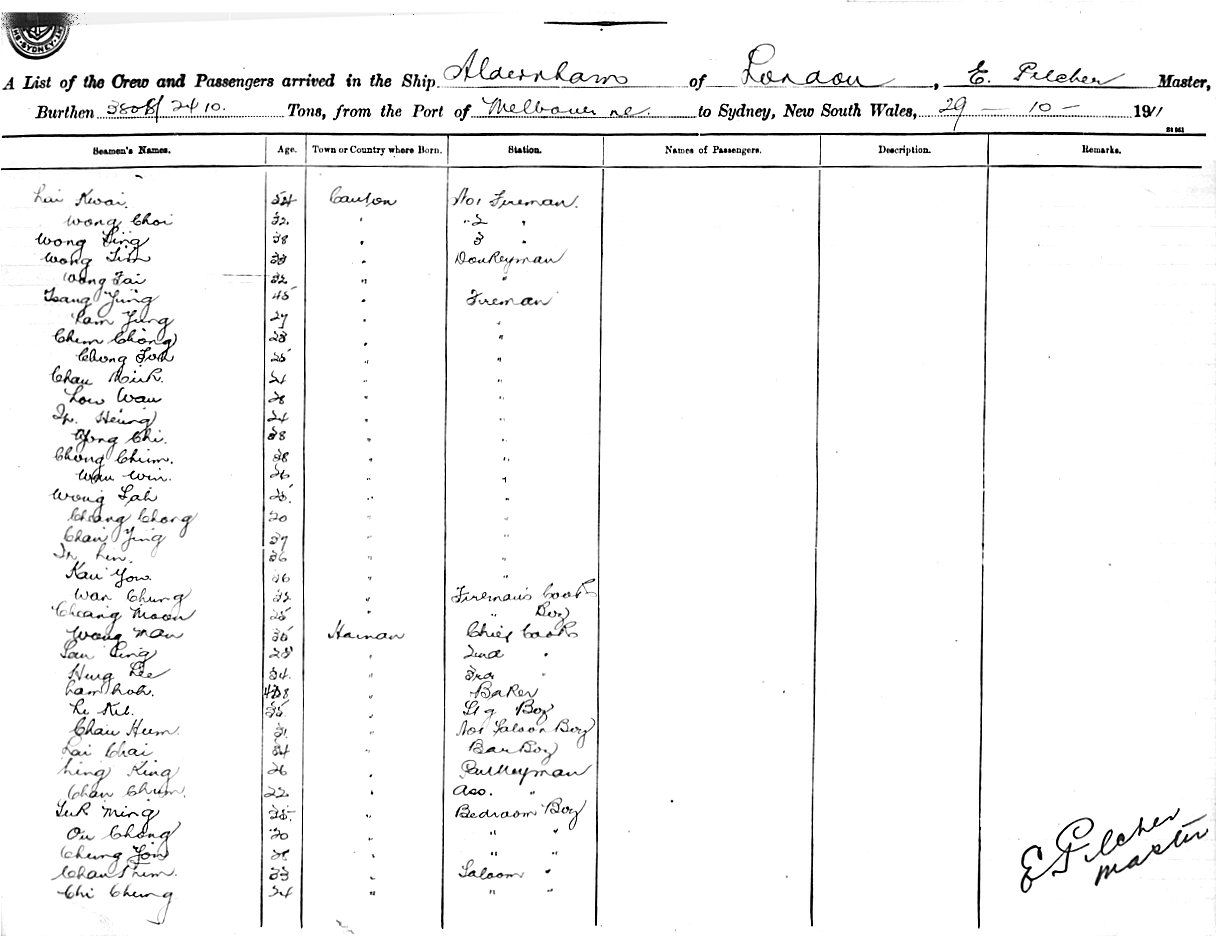 A List of the Crew and Passengers arrived in the Ship Aldernham of London, E. Pilcher Master,
Burthen 3808/2410. Tons, from the Port of Melbourne. to Sydney, New South Wales, 29 — 10 — 1911
Seamen's Names. Age. Town or Country where Born. Station. Names of Passengers. Description. Remarks.
Lai Kwai. 54 Canton No1 Fireman.
Wong Choi 32 " " 2 "
Wong Sing 38 " 3 "
Wong Tim 33 " Donkeyman
Wong Tai 32 " "
Tsang Ying 45 " Fireman
Lam Yung 27 " "
Chim Chong 28 " "
Chong Foh 25 " "
Chau Mick. 24 " "
Low Wau 28 " "
Ip. Heung 24 " "
Wong Chi. 38 " "
Chong Chim. 38 " "
Wan Win. 26 " "
Wong Lah 25 " "
Cheang Chong 20 " "
Chan Ying 37 " "
Ip Lin. 36 " "
Kau Yow. 36 " "
Wan Chung 32 " Fireman's Cook
Cheang Moon 25 " " Boy
Wong Nau 35 Hainan Chief Cook
Sau Sing 28 " 2nd "
Hung Lee 34. " 3rd "
Lam hoh. 38 " Baker
Li Kee. 35 " Stg Boy
Chau Hum. 31 " No1 Saloon Boy
Lai Chai 34 " Bar Boy
Ling King 26 " Pantryman
Chan Chum. 22 " Ass. "
Luk Ming 25 " Bedroom Boy
Ou Chong 20 " " "
Chung Yon 28 " " "
Chan Shem. 33 " Saloom "
Chi Cheung 24 " " "
E Pilcher
Master